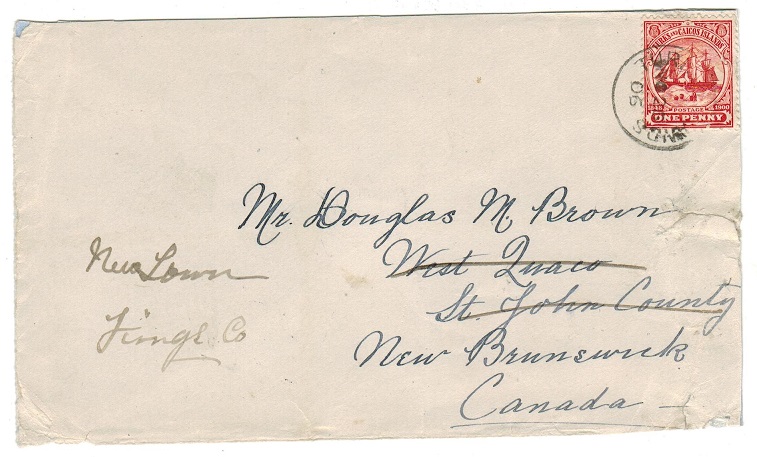 TURKS AND CAICOS ISLANDS
POSTAGE
1848 1900
ONE PENNY
06
Mr. Douglas M. Brown
West Quaco
St. John County
New Brunswick
Canada
New Town
Kings Co